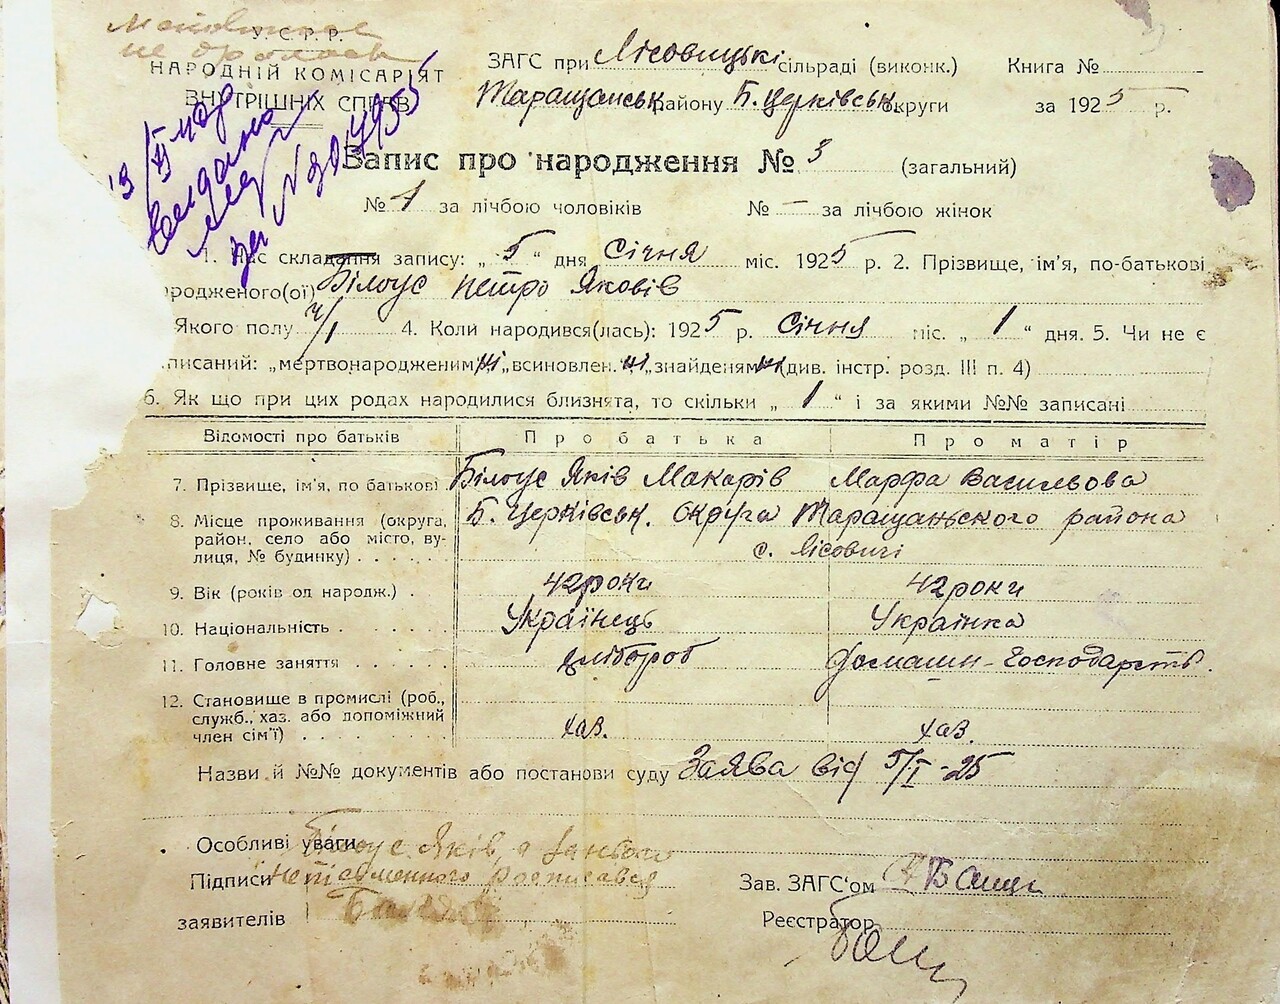 У.С.Р.Р.
НАРОДНІЙ КОМІСАРІЯТ
ВНУТРІШНІХ СПРАВ
ЗАГС при Лісовицькі сільраді (виконк.)
Книга №
Таращанськ району Б. Церківськ округи
за 1925 р.
Запис про народження № 3 (загальний)
№ 1 за лічбою чоловіків № — за лічбою жінок
1. Час складання запису: „ 5 “ дня Січня міс. 1925 р. 2. Прізвище, ім'я, по-батькові
ородженого(ої) Білоус Петро Яковів
Якого полу ч/1 4. Коли народився(лась): 1925 р. Січня міс. „ 1 “ дня. 5. Чи не є
писаний: „мертвонародженим „всиновлен. „знайденям (див. інстр. розд. III п. 4)
6. Як що при цих родах народилися близнята, то скільки „ 1 “ і за якими №№ записані
Відомості про батьків Про батька Про матір
7. Прізвище, ім'я, по батькові Білоус Яків Макарів Марфа Васильова
8. Місце проживання (округа, Б. Церківськ. Округа Таращаньского района
район, село або місто, ву-
лиця, № будинку) с. Лісовичі
9. Вік (років од народж.) 42 роки 42 роки
10. Національність Українець Українка
11. Головне заняття хлібороб Домашн-Господарств.
12. Становище в промислі (роб.,
служб., хаз. або допоміжний
член сім'ї) хаз. хаз.
Назви й №№ документів або постанови суду Заява від 5/I-25
Особливі уваги Білоус Яків, а
Підписи неписьменного росписався
заявителів
Зав. ЗАГС'ом
Реєстратор